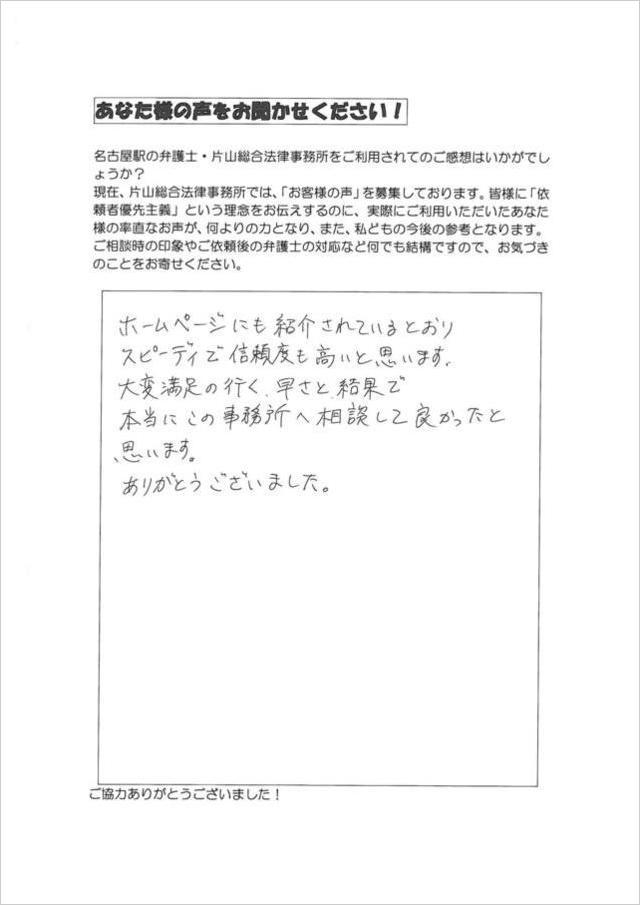 あなた様の声をお聞かせください！
名古屋駅の弁護士・片山総合法律事務所をご利用されてのご感想はいかがでし
ょうか？
現在、片山総合法律事務所では、「お客様の声」を募集しております。皆様に「依
頼者優先主義」という理念をお伝えするのに、実際にご利用いただいたあなた
様の率直なお声が、何よりの力となり、また、私どもの今後の参考となります。
ご相談時の印象やご依頼後の弁護士の対応など何でも結構ですので、お気づき
のことをお寄せください。
ホームページにも紹介されているとおり
スピーディで信頼度も高いと思います.
大変満足の行く、早さと、結果で
本当にこの事務所へ相談して良かったと
思います。
ありがとうございました。
ご協力ありがとうございました！